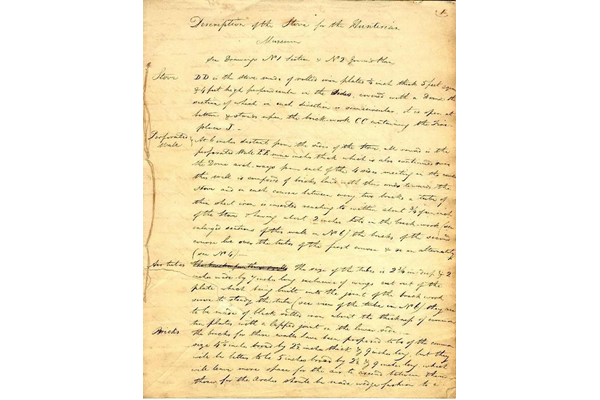 1
Description of the Stove for the Hunterian
Museum
See Drawings Nº1 Section & Nº3 Ground Plan
Stove
DD is the stove made of rolled iron plates ¼ inch thick 3 feet square
& 4 feet high perpendicular in the sides, covered with a Dome the
section of which in each direction is semicircular. it is open at
bottom & stands upon the brick work CC containing the Fire
place I.
Perforated
Wall
At 6 inches distant from the sides of the Stove all round is the
perforated Wall EE nine inches thick which is also continued over
the Dome arch ways from each of the 4 sides meeting in the center
this wall is composed of bricks laid with this ends towards the
stove and in each course between every two bricks a tube of
thin sheet iron is inserted reaching to within about ¾ of an inch
of the Stove & having about 2 inches hole in the brick work (see
enlarged sections of this wall in Nº 6) the bricks of the second
course lie over the tubes of the first course & so on alternately
(see Nº 6)
Air tubes
the size of the tubes is 2¼ in deep & 2
inches wide by 7 inches long exclusive of wings cut out of the
plate which being built into the joint of the brick work
serve to steady the tube (see view of the tube in Nº 6) they are
to be made of black rolled iron about the thickness of common
tin plates with a lapped joint in the lower side
Bricks
the bricks for these walls have been proposed to be of the common
size 4½ inches broad by 2½ inches thick & 9 inches long, but they
will be better to be 3 inches broad by 2½ & 9 inches long which
will leave more space for the air to ascend between them
those for the arches should be made wedge fashion to a